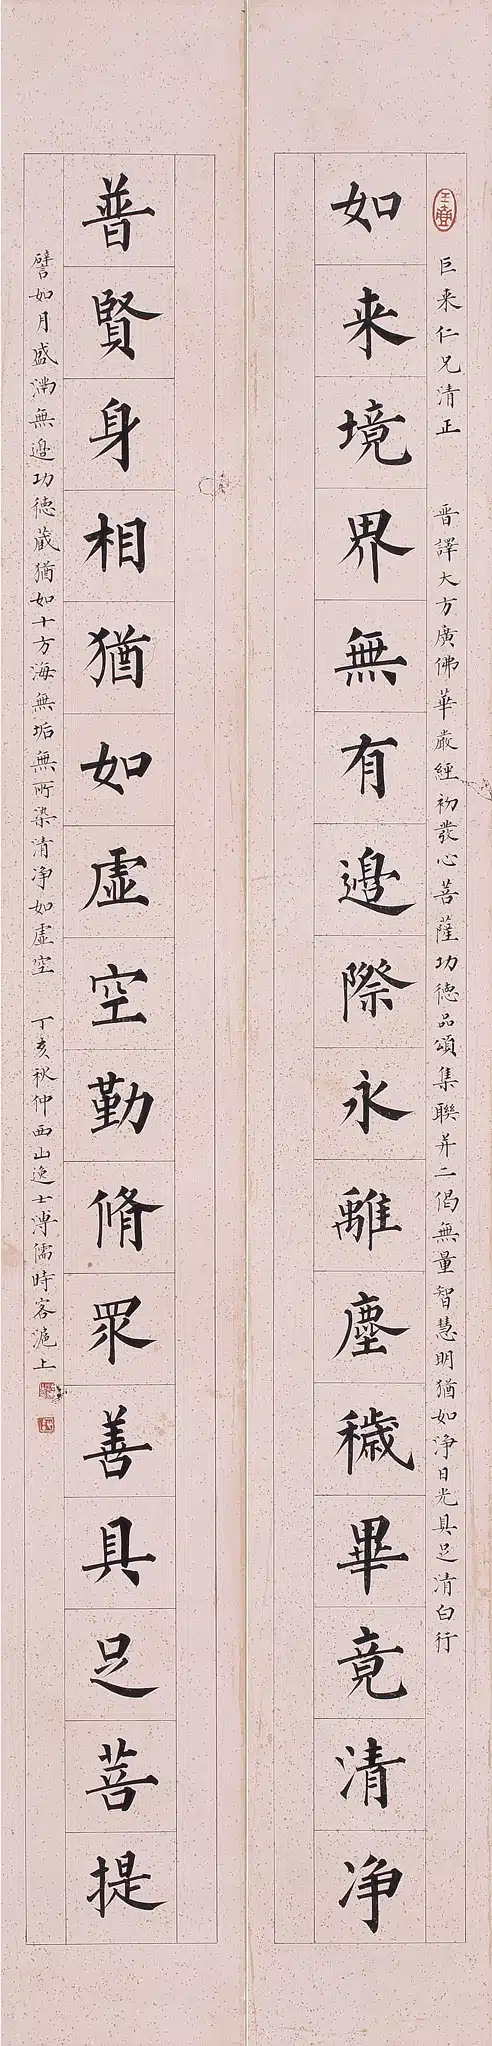 巨来仁兄清正　晋譯大方廣佛華嚴經初發心菩薩功德品頌集聯并二偈無量智慧明猶如淨日光具足清白行
如来境界無有邊際永離塵穢畢竟清净
普賢身相猶如虛空勤脩眾善具足菩提
譬如月盛滿無邊功德藏猶如十方海無垢無所染清净如虛空　丁亥秋仲西山逸士溥儒時客滬上